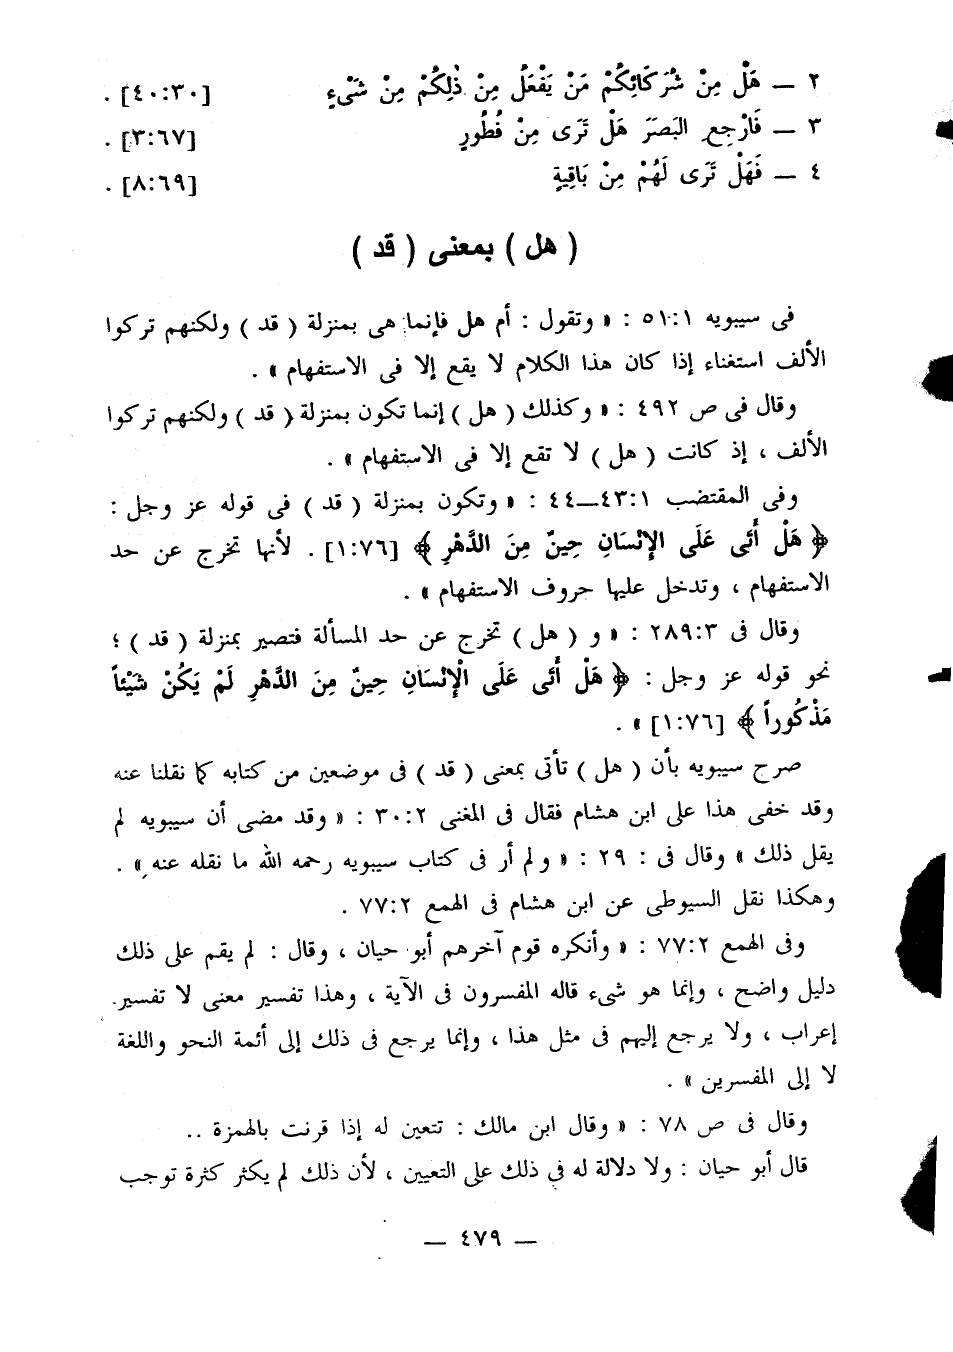 ٢ — هَلْ مِنْ شُرَكَائِكُمْ مَنْ يَفْعَلُ مِنْ ذٰلِكُمْ مِنْ شَىْءٍ [٤٠:٣٠] .
٣ — فَارْجِعِ البَصَرَ هَلْ تَرَى مِنْ فُطُورٍ [٣:٦٧] .
٤ — فَهَلْ تَرَى لَهُمْ مِنْ بَاقِيةٍ [٨:٦٩] .
( هل ) بمعنى ( قد )
فى سيبويه ٥١:١ : « وتقول : أم هل فإنما هى بمنزلة ( قد ) ولكنهم تركوا
الألف استغناء إذا كان هذا الكلام لا يقع إلا فى الاستفهام » .
وقال فى ص ٤٩٢ : « وكذلك ( هل ) إنما تكون بمنزلة ( قد ) ولكنهم تركوا
الألف ، إذ كانت ( هل ) لا تقع إلا فى الاستفهام » .
وفى المقتضب ٤٣:١—٤٤ : « وتكون بمنزلة ( قد ) فى قوله عز وجل :
﴿ هَلْ أَتَى عَلَى الإنْسَانِ حِينٌ مِنَ الدَّهْرِ ﴾ [١:٧٦] . لأنها تخرج عن حد
الاستفهام ، وتدخل عليها حروف الاستفهام » .
وقال فى ٢٨٩:٣ : « و ( هل ) تخرج عن حد المسألة فتصير بمنزلة ( قد ) ؛
نحو قوله عز وجل : ﴿ هَلْ أَتَى عَلَى الْإنْسَانِ حِينٌ مِنَ الدَّهْرِ لَمْ يَكُنْ شَيْئاً
مَذْكُوراً ﴾ [١:٧٦] » .
صرح سيبويه بأن ( هل ) تأتى بمعنى ( قد ) فى موضعين من كتابه كما نقلنا عنه
وقد خفى هذا على ابن هشام فقال فى المغنى ٣٠:٢ : « وقد مضى أن سيبويه لم
يقل ذلك » وقال فى : ٢٩ : « ولم أر فى كتاب سيبويه رحمه الله ما نقله عنه » .
وهكذا نقل السيوطى عن ابن هشام فى الهمع ٧٧:٢ .
وفى الهمع ٧٧:٢ : « وأنكره قوم آخرهم أبو حيان ، وقال : لم يقم على ذلك
دليل واضح ، وإنما هو شىء قاله المفسرون فى الآية ، وهذا تفسير معنى لا تفسير
إعراب ، ولا يرجع إليهم فى مثل هذا ، وإنما يرجع فى ذلك إلى أئمة النحو واللغة
لا إلى المفسرين » .
وقال فى ص ٧٨ : « وقال ابن مالك : تتعين له إذا قرنت بالهمزة ..
قال أبو حيان : ولا دلالة له فى ذلك على التعيين ، لأن ذلك لم يكثر كثرة توجب
— ٤٧٩ —